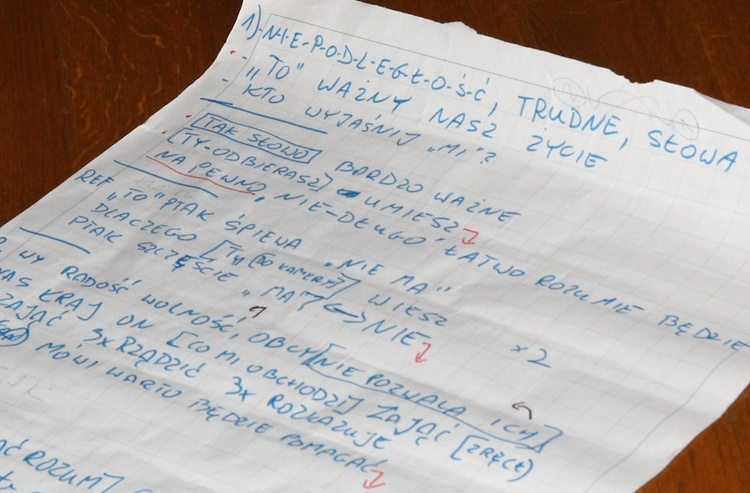 1) N-I-E-P-O-D-L-E-G-Ł-O-Ś-Ć, TRUDNE, SŁOWA
- „TO" WAŻNY NASZ ŻYCIE
- KTO WYJAŚNIJ „MI"?
[TAK SŁOWO] BARDZO WAŻNE
[TY-ODBIERASZ] UMIESZ
NA PEWNO, NIE-DŁUGO ŁATWO ROZUMIE BĘDZIE
REF „TO" PTAK ŚPIEWA „NIE MA"
DLACZEGO [TY (DO KAMERA)] WIESZ
PTAK SZCZĘŚCIE „MA"? <-> NIE x2
WY RADOŚĆ WOLNOŚĆ, OBCY [NIE POZWALA ICH]
KRAJ ON [CO MI OBCHODZI] ZAJĄĆ [ZRĘCE)
ZAJĄĆ 3x RZĄDZIĆ 3x ROZKAZUJE
MÓWI WARTO BĘDZIE POMAGAĆ
ROZUM